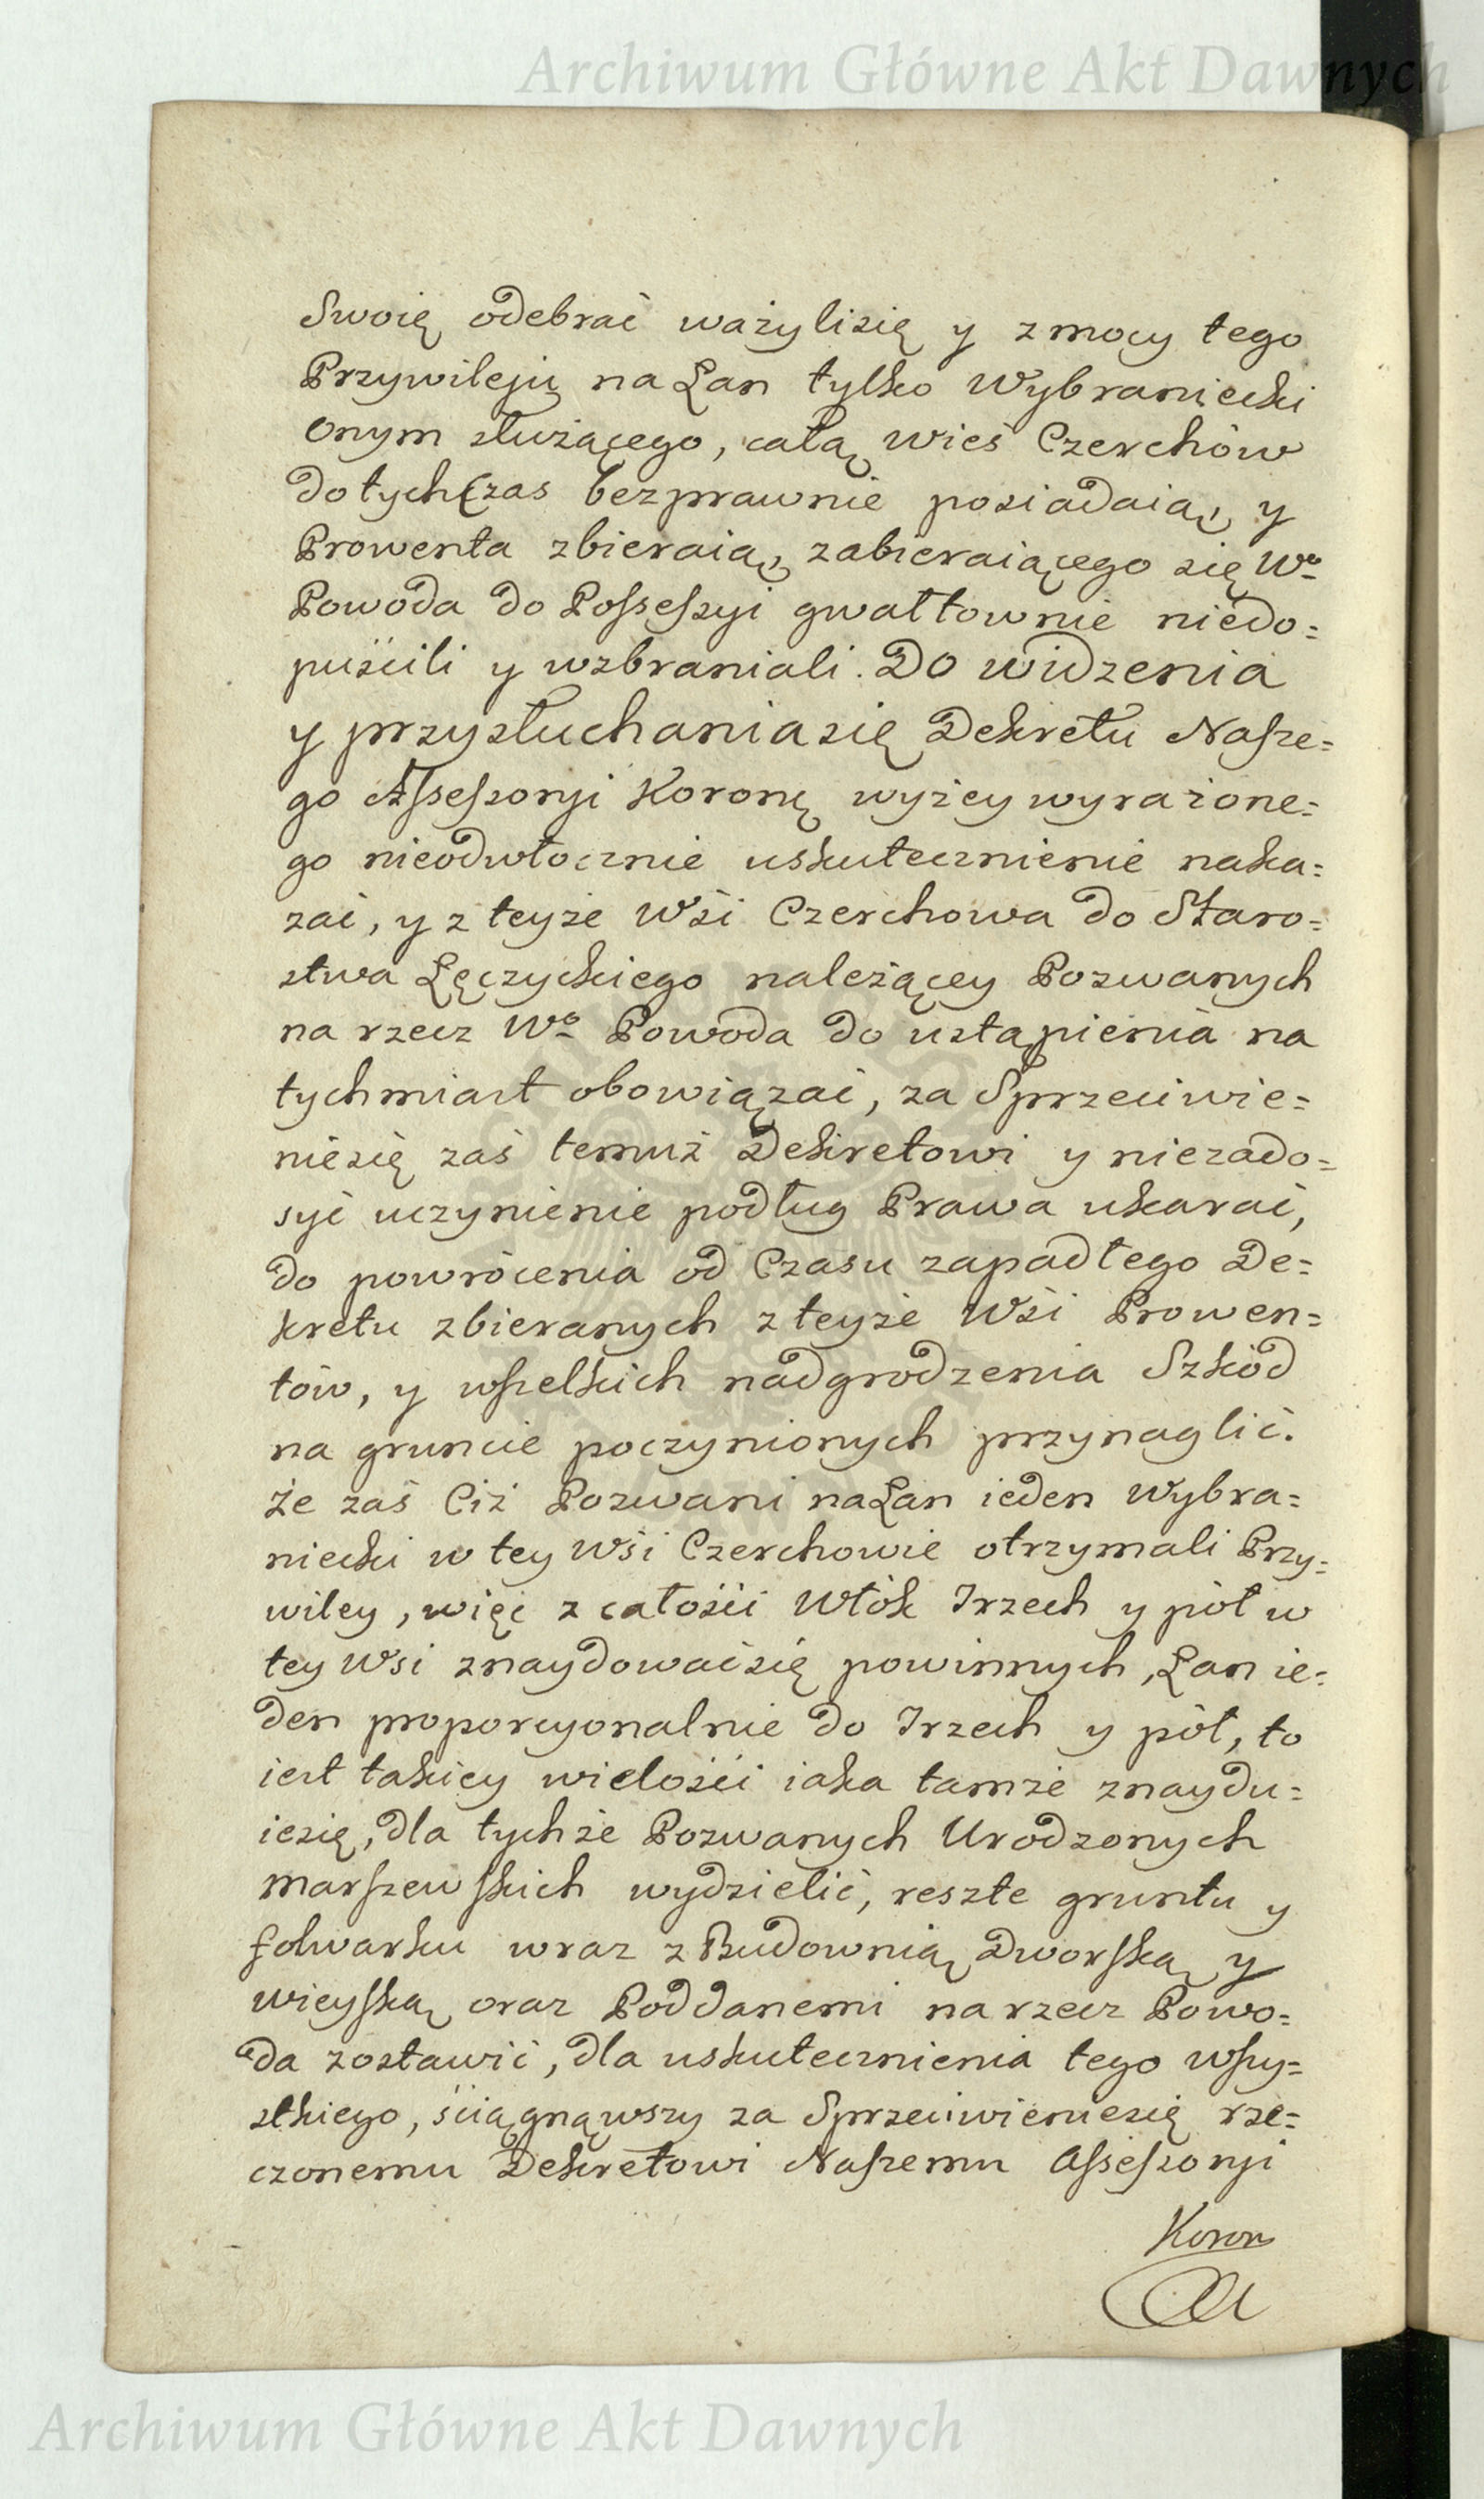 Archiwum Główne Akt Dawnych
Swoię odebrać ważyli się y z mocy tego
Przywileju na Łan tylko Wybraniecki
onym służącego, całą wieś Czerchów
dotychczas bezprawnie posiadaią, y
Prowenta zbieraią, zabieraiącego się Wo
Powoda do Possessyi gwałtownie niedo=
puścili y wzbraniali. Do widzenia
y przysłuchania się Dekretu Nasze=
go Assessoryi Koronę wyżey wyrażone=
go nieodwłocznie uskutecznienie naka=
zać, y z teyże Wśi Czerchowa do Staro=
stwa Łęczyckiego należącey Pozwanych
na rzecz Wo Powoda do ustąpienia na
tychmiast obowiązać, za Sprzeciwie=
nie się zaś temuż Dekretowi y niezado=
syć uczynienie podług Prawa ukarać,
do powrócenia od Czasu zapadłego De=
kretu zbieranych z teyże Wśi Prowen=
tów, y wszelkich nadgrodzenia Szkód
na gruncie poczynionych przynaglić.
Że zaś Ciż Pozwani na Łan ieden Wybra=
niecki w tey Wśi Czerchowie otrzymali Przy=
wiley, więc z całości Włók Trzech y pół w
tey Wsi znaydować się powinnych, Łan ie=
den proporcyonalnie do Trzech y pół, to
iest takiey wielości iaka tamże znaydu=
ie się, dla tychże Pozwanych Urodzonych
Marszewskich wydzielić, reszte gruntu y
folwarku wraz z Budownią Dworską y
wieyską oraz Poddanemi na rzecz Powo=
da zostawić, dla uskutecznienia tego wszy=
stkiego, ściągnąwszy za Sprzeciwienie się rze=
czonemu Dekretowi Naszemu Assessoryi
Koron
Archiwum Główne Akt Dawnych